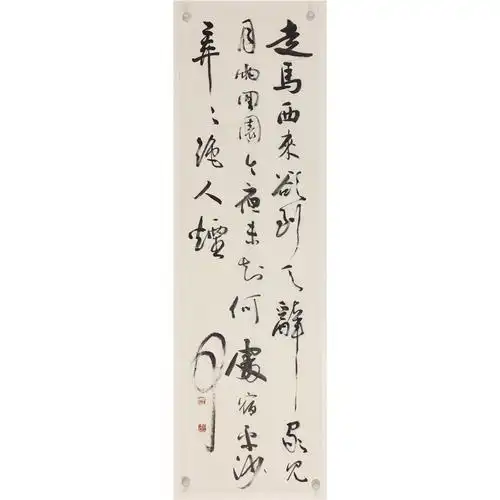 走馬西來欲到天辭家見
月兩回園今夜未知何處宿平沙
莽〻絕人煙